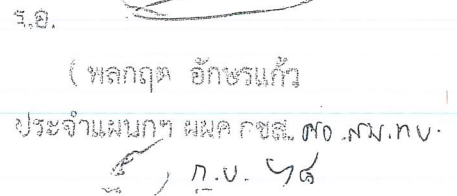 ร.อ.
( พลกฤต อักษรแก้ว
ประจำแผนกฯ ผนค กขส.
ก.ย. ๖๘